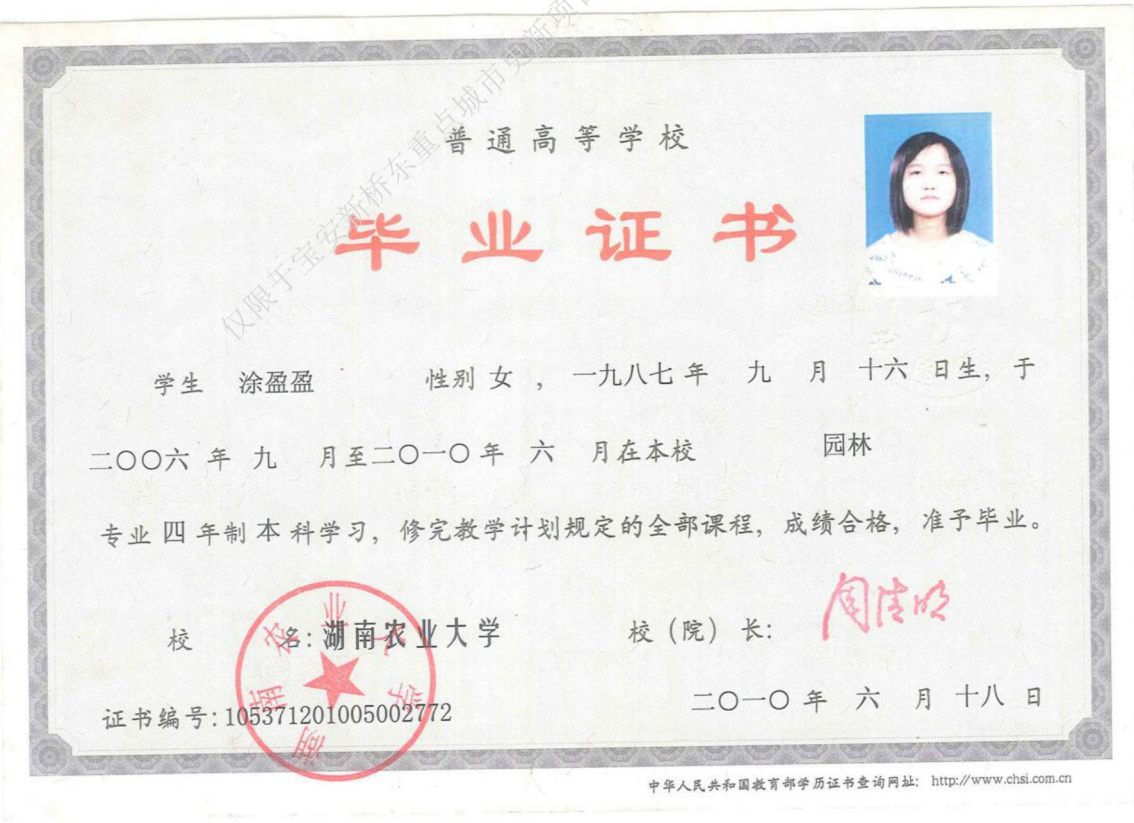 仅限于宝安新桥东重点城市更新项
普通高等学校
毕业证书
学生 涂盈盈 性别 女 ，一九八七 年 九 月 十六 日生，于
二〇〇六 年 九 月至二〇一〇年 六 月在本校 园林
专业 四 年制 本 科学习，修完教学计划规定的全部课程，成绩合格，准予毕业。
校 名：湖南农业大学 校（院）长：周清明
湖南农业大学
证书编号：105371201005002772 二〇一〇 年 六 月 十八 日
中华人民共和国教育部学历证书查询网址： http://www.chsi.com.cn